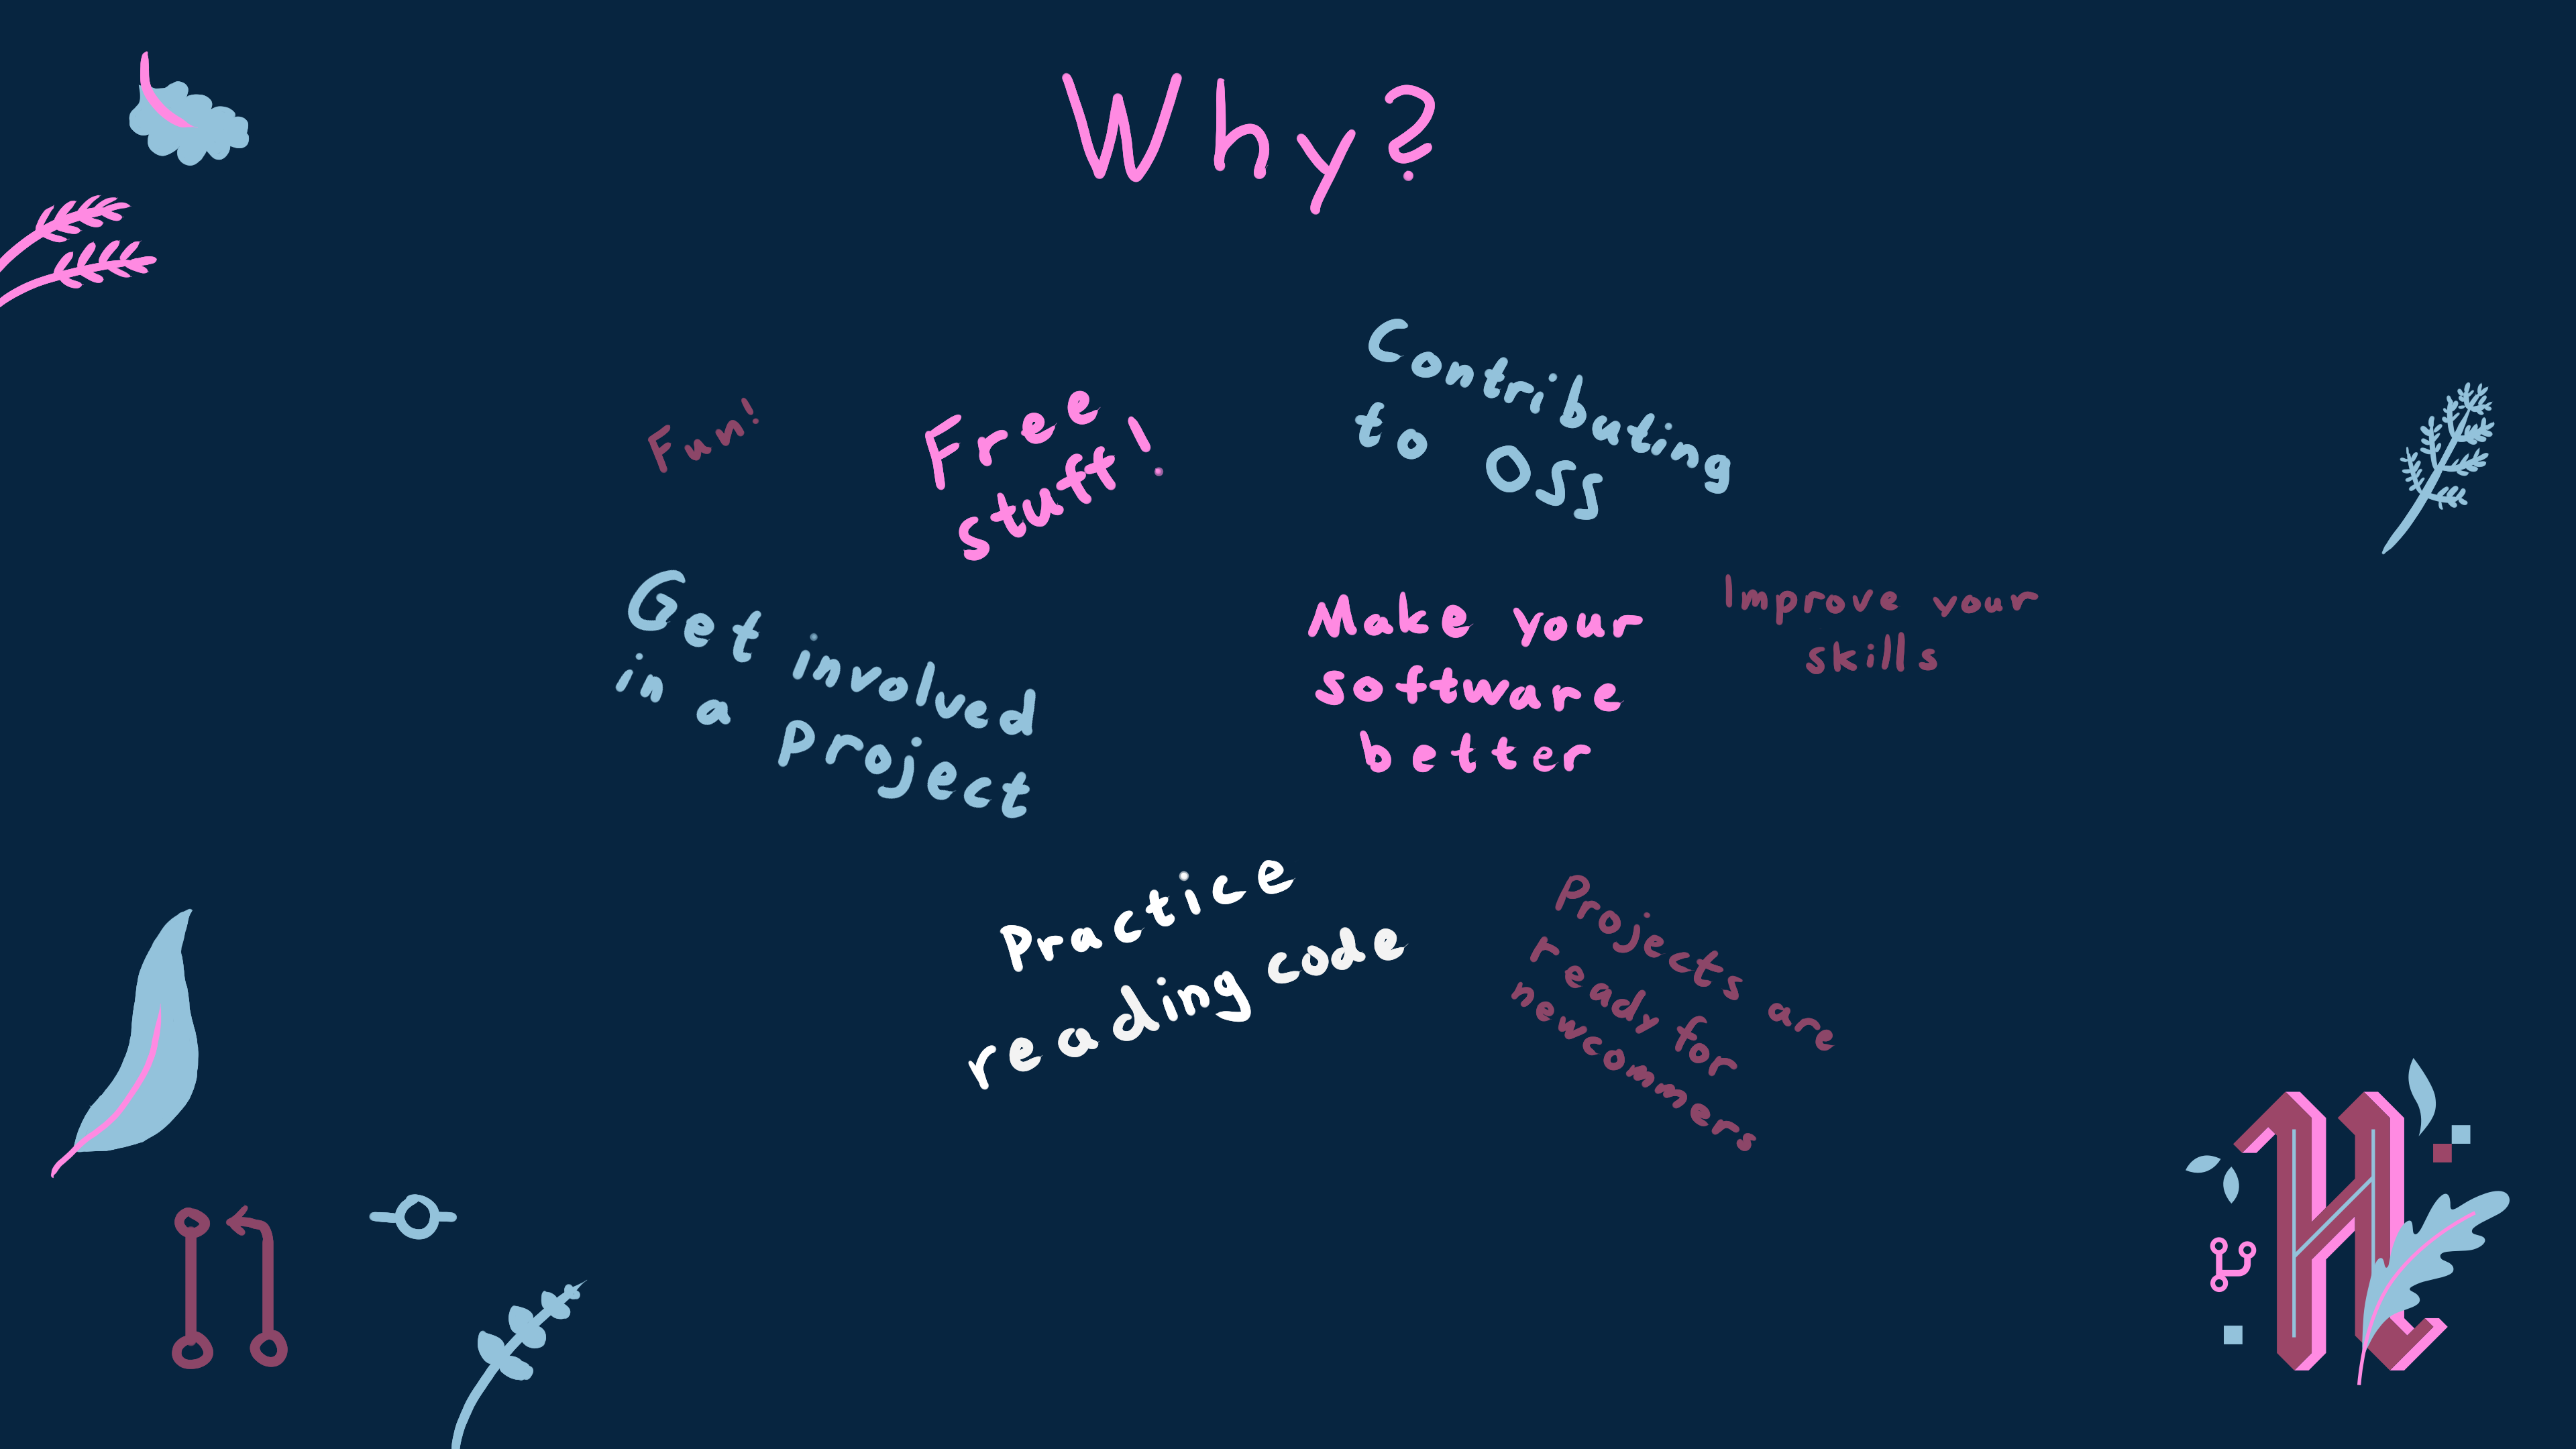 Why?
Fun!
Free
stuff!
Contributing
to OSS
Get involved
in a project
Make your
software
better
Improve your
skills
Practice
reading code
Projects are
ready for
newcommers
H